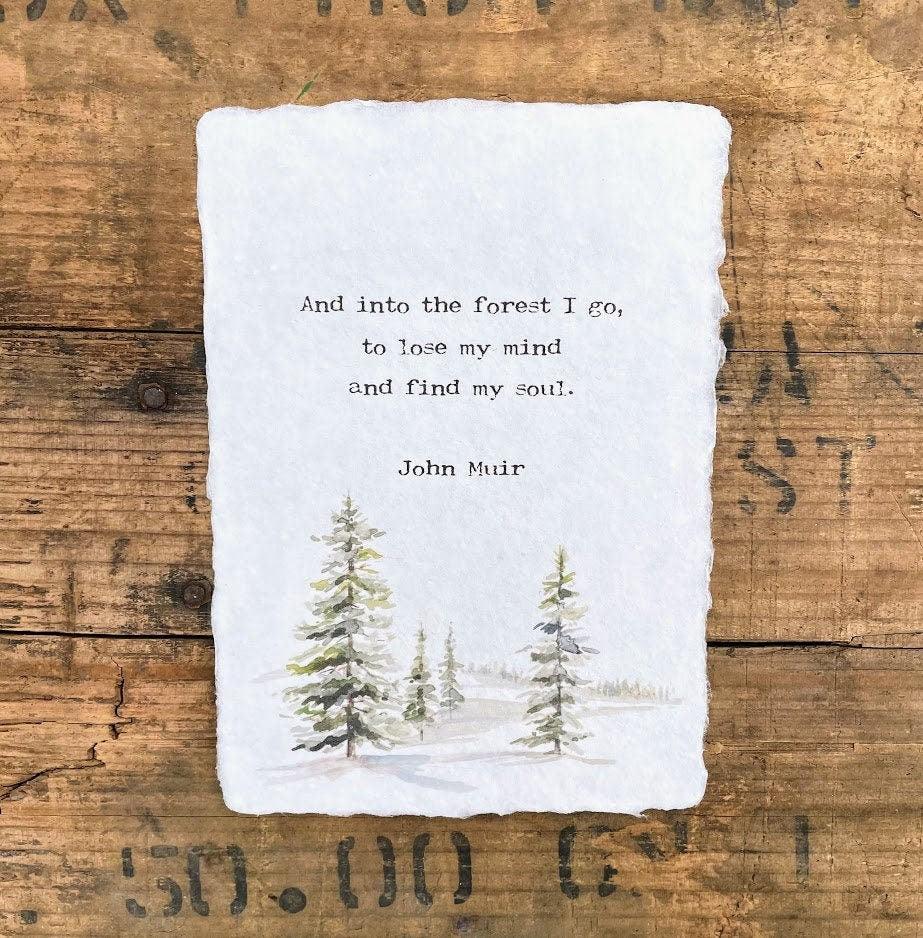 And into the forest I go,
to lose my mind
and find my soul.
John Muir
ST
50.00